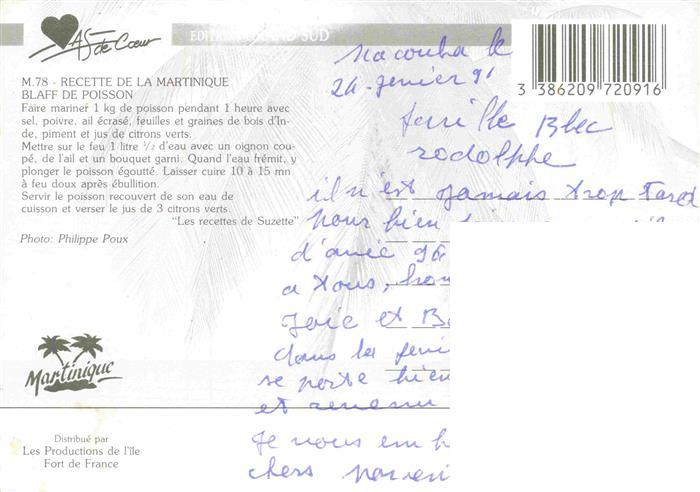 As de Cœur
EDITIONS GRAND SUD
M.78 - RECETTE DE LA MARTINIQUE
BLAFF DE POISSON
Faire mariner 1 kg de poisson pendant 1 heure avec
sel, poivre, ail écrasé, feuilles et graines de bois d'In-
de, piment et jus de citrons verts.
Mettre sur le feu 1 litre ½ d'eau avec un oignon cou-
pé, de l'ail et un bouquet garni. Quand l'eau frémit, y
plonger le poisson égoutté. Laisser cuire 10 à 15 mn
à feu doux après ébullition.
Servir le poisson recouvert de son eau de
cuisson et verser le jus de 3 citrons verts.
"Les recettes de Suzette"
Photo: Philippe Poux
Martinique
Distribué par
Les Productions de l'île
Fort de France
3 386209 720916
Macouba le
famille Blec
rodolphe
il n'est jamais trop Tard
pour bien
d'anée 96
a tous,
Joie et
dans la
se porte bien
et
Je vous em
chers